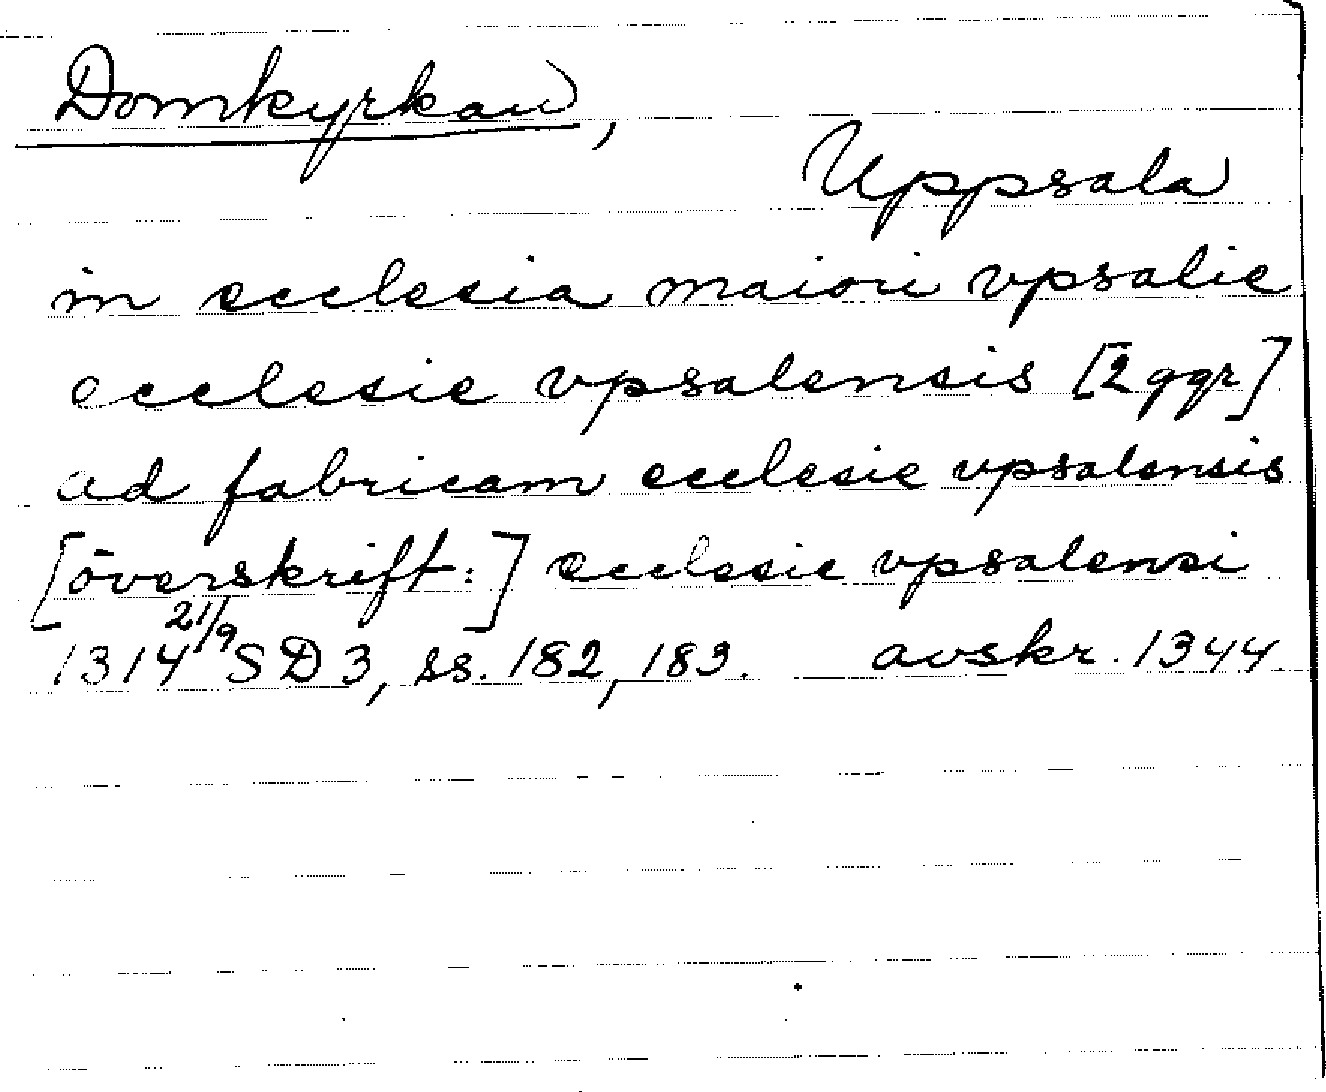 Domkyrkan,
Uppsala
in ecclesia maiori vpsalie
ecclesie vpsalensis [2 ggr]
ad fabricam ecclesie vpsalensis
[överskrift:] ecclesie vpsalensi
1314 21/9 SD 3, ss. 182, 183. avskr. 1344